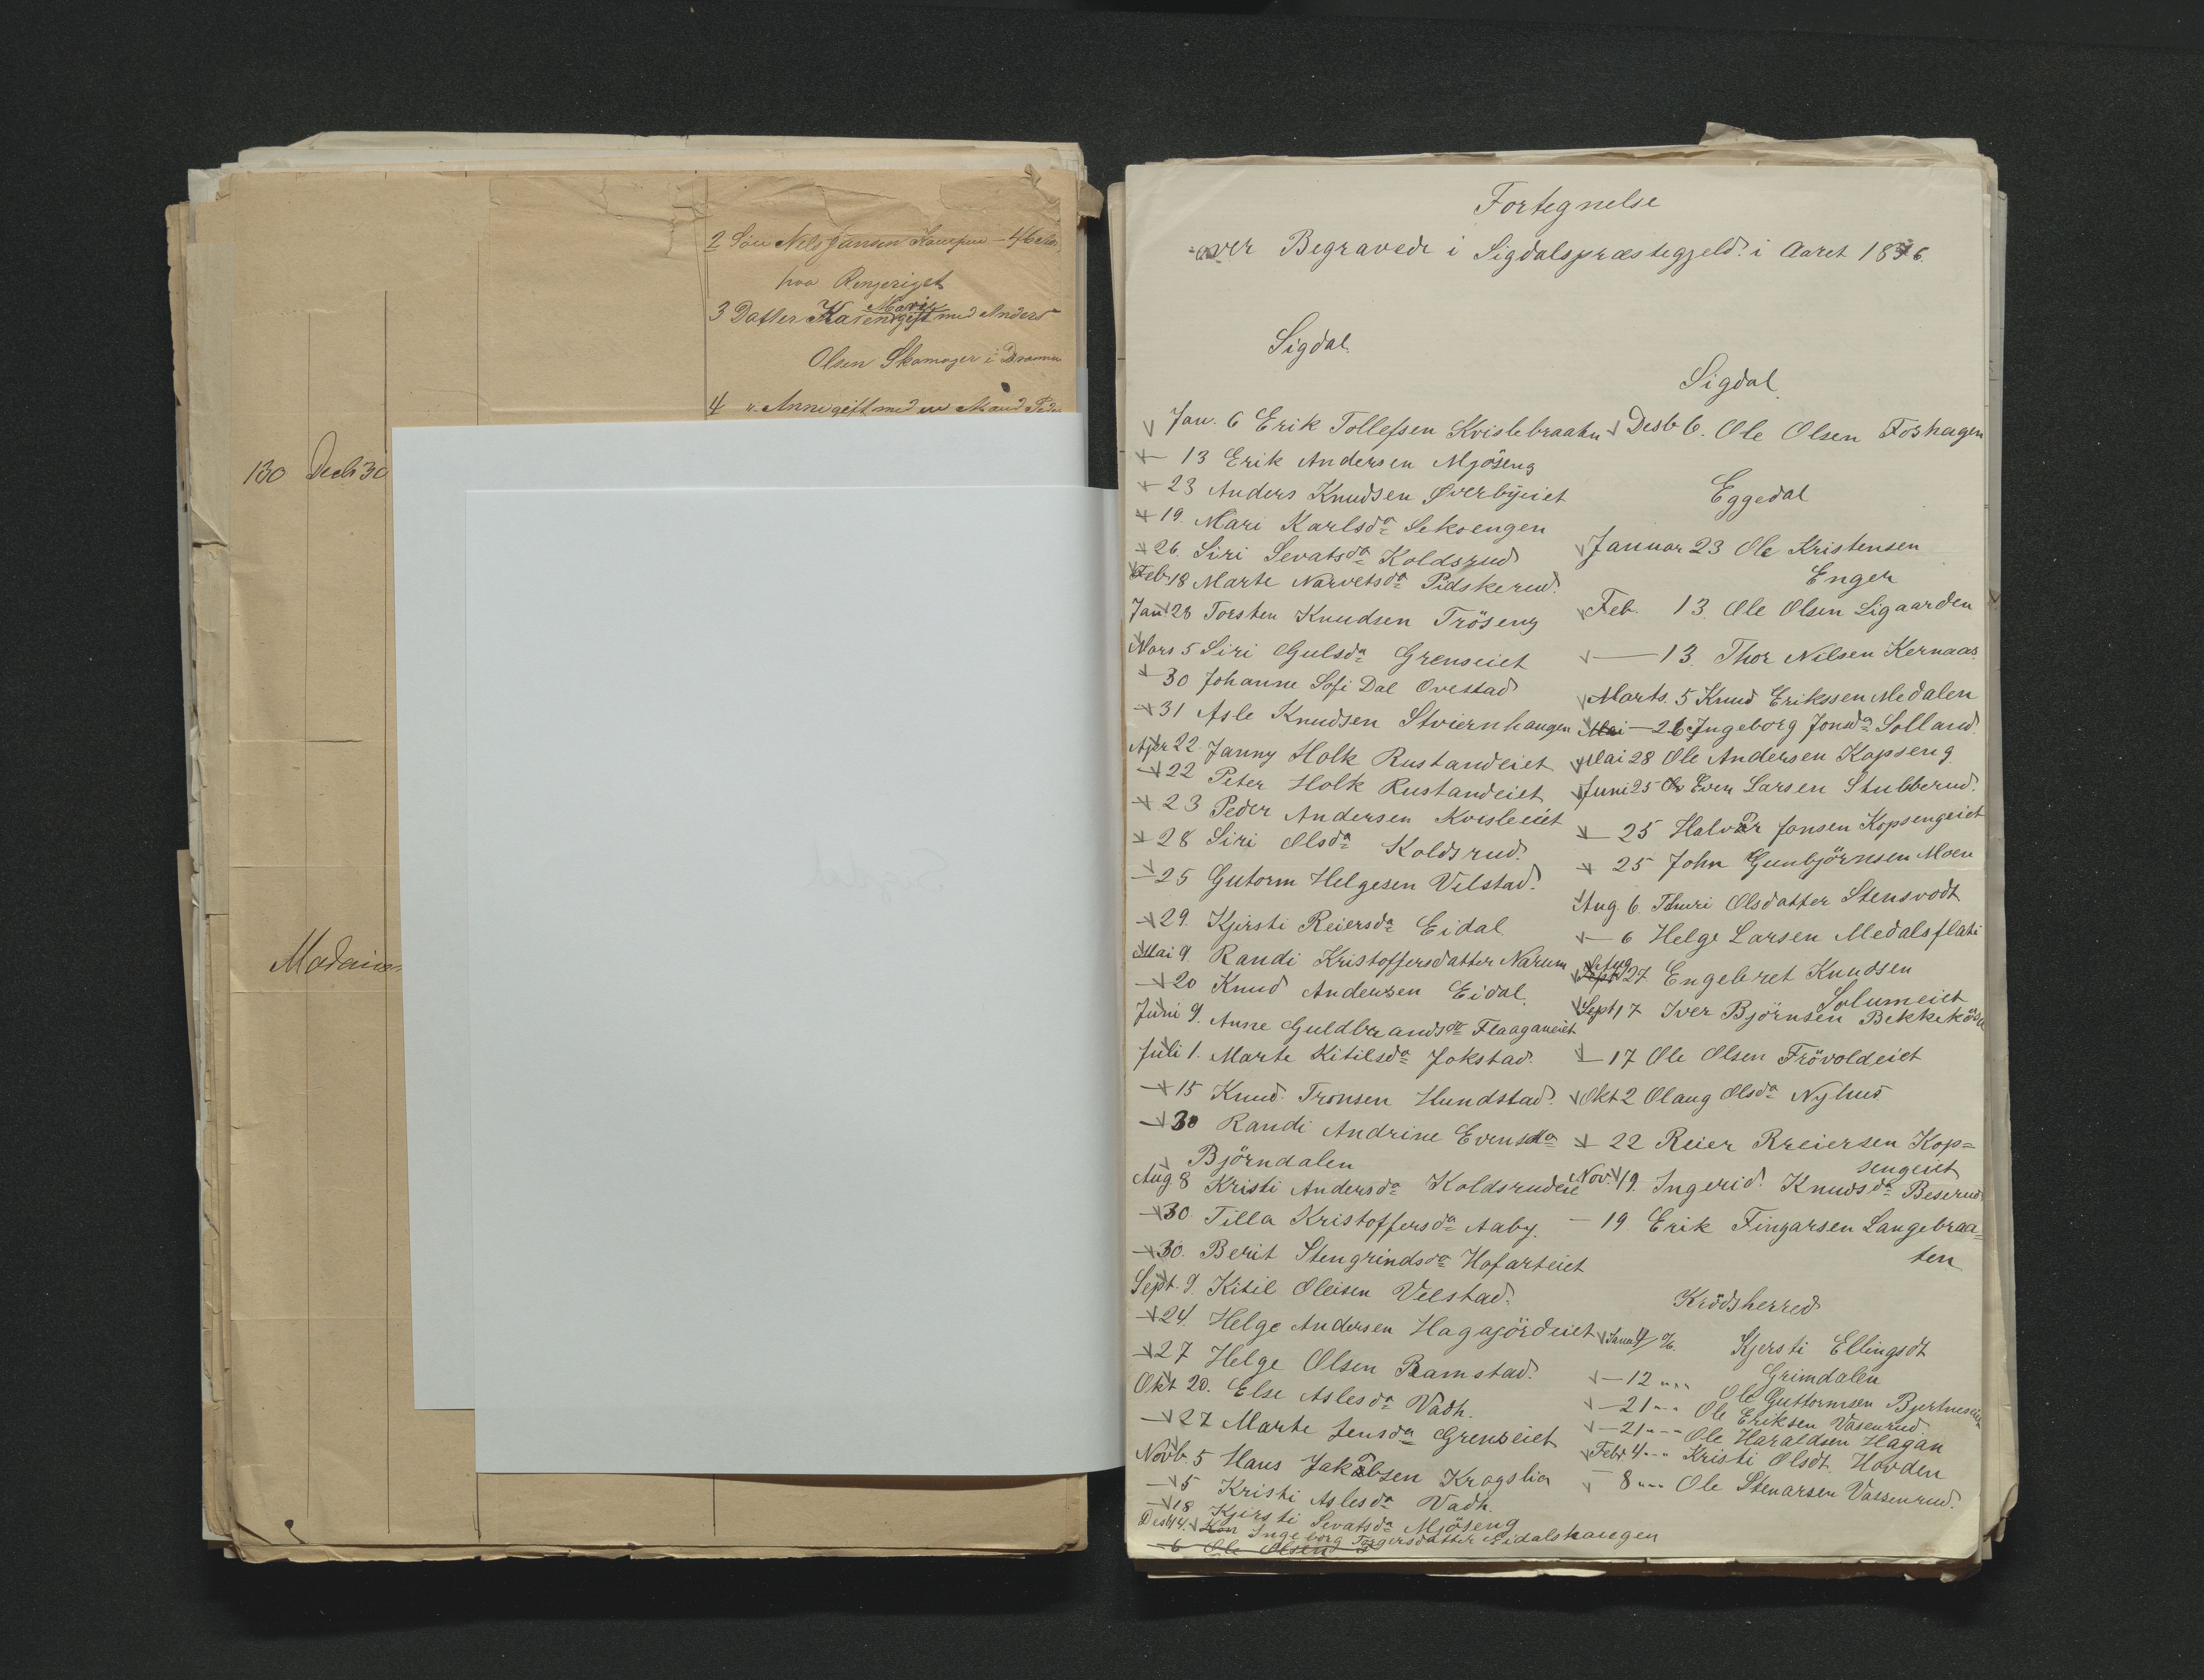 2 Søn Nels Jansen
paa Ringeriget
3 Datter Karen Mari gift med Anders
Olsen Skomager i Dramm
4 " Anne gift med en Mand
130 Decbr 30
Fortegnelse
over Begravede i Sigdalspræstegjeld i Aaret 1896.
Sigdal.
Jan. 6 Erik Tollefsen Kvislebraatn
— 13 Erik Andersen Mjöseng
— 23 Anders Knudsen Øverbyeiet
— 19. Mari Karlsda Sekoengen
— 26. Siri Sevatsda Koldsrud
Feb 18 Marte Narvetsda Pidskerud.
Jan 28 Torsten Knudsen Tröseng
Mars 5 Siri Gulsda Grenseiet
— 30 Johanne Sofi Dal Ovestad
— 31 Asle Knudsen Stviernhaugen
Apr 22 Janny Holk Rustandeiet
— 22 Peter Holk Rustandeiet
— 23 Peder Andersen Kvisleeiet
— 28 Siri Olsda Koldsrud.
— 25 Gutorm Helgesen Vilstad.
— 29. Kjersti Reiersda Eidal
Mai 9. Randi Kristoffersdatter Narum
— 20 Knud Andersen Eidal.
Juni 9. Anne Guldbrandsda Flaaganeiet
Juli 1. Marte Kitilsda Jokstad.
— 15 Knud Tronsen Hundstad.
— 30 Randi Andrine Evensda
Björndalen
Aug 8 Kristi Andersda Koldsrudeie
— 30. Tilla Kristoffersda Aaby.
— 30. Berit Stengrindsda Hofarteiet
Sept. 9. Kitil Oleisen Velstad.
— 24. Helge Andersen Hagajördeiet
— 27 Helge Olsen Ramstad.
Okt 20. Else Aslesda Vadh.
— 27 Marte Jensda Grenseiet
Novb. 5 Hans Jakobsen Kragslia
— 5 Kristi Aslesda Vadh.
— 18 Kjersti Sevatsda Mjöseng
Desb 14. Ingeborg Torgersdatter Eidalshaugen
— 6 Ole Olsen
Sigdal
Desb 6. Ole Olsen Foshagen
Eggedal
Januar 23 Ole Kristensen
Enger
Feb. 13. Ole Olsen Ligaarden
— 13. Thor Nilsen Kernaas.
Marts. 5 Knud Erikssen Medalen
Mai — 26 Ingeborg Jonsda Solland.
Mai 28 Ole Andersen Kopseng
Juni 25 Even Larsen Stubberud.
— 25 Halvor Jonsen Kopsengeiet
— 25 John Gunbjörnsen Moen
Aug. 6. Thuri Olsdatter Stensvodt
— 6 Helge Larsen Medalsflati
Sept Aug 27. Engebret Knudsen
Solumeiet
Sept 17 Iver Björnsen Bekkeköse
— 17 Ole Olsen Frövoldeiet
Okt 2 Olaug Olsda Nyhus
— 22 Reier Rreiersen Kop=
sengeiet
Nov. 19. Ingerid Knudsda Beserud
— 19. Erik Fingarsen Langebraa=
ten
Krödsherred
Januar 4/96. Kjersti Ellingsdt
Grimdalen
— 12 " " Ole Guttormsen Bjertneseiet
— 21 " " Ole Eriksen Vasenrud.
— 21 " " Ole Haraldsen Hagan
Febr 4 " " Kristi Olsdt. Hovden
— 8 " " Ole Stenarsen Vassenrud.